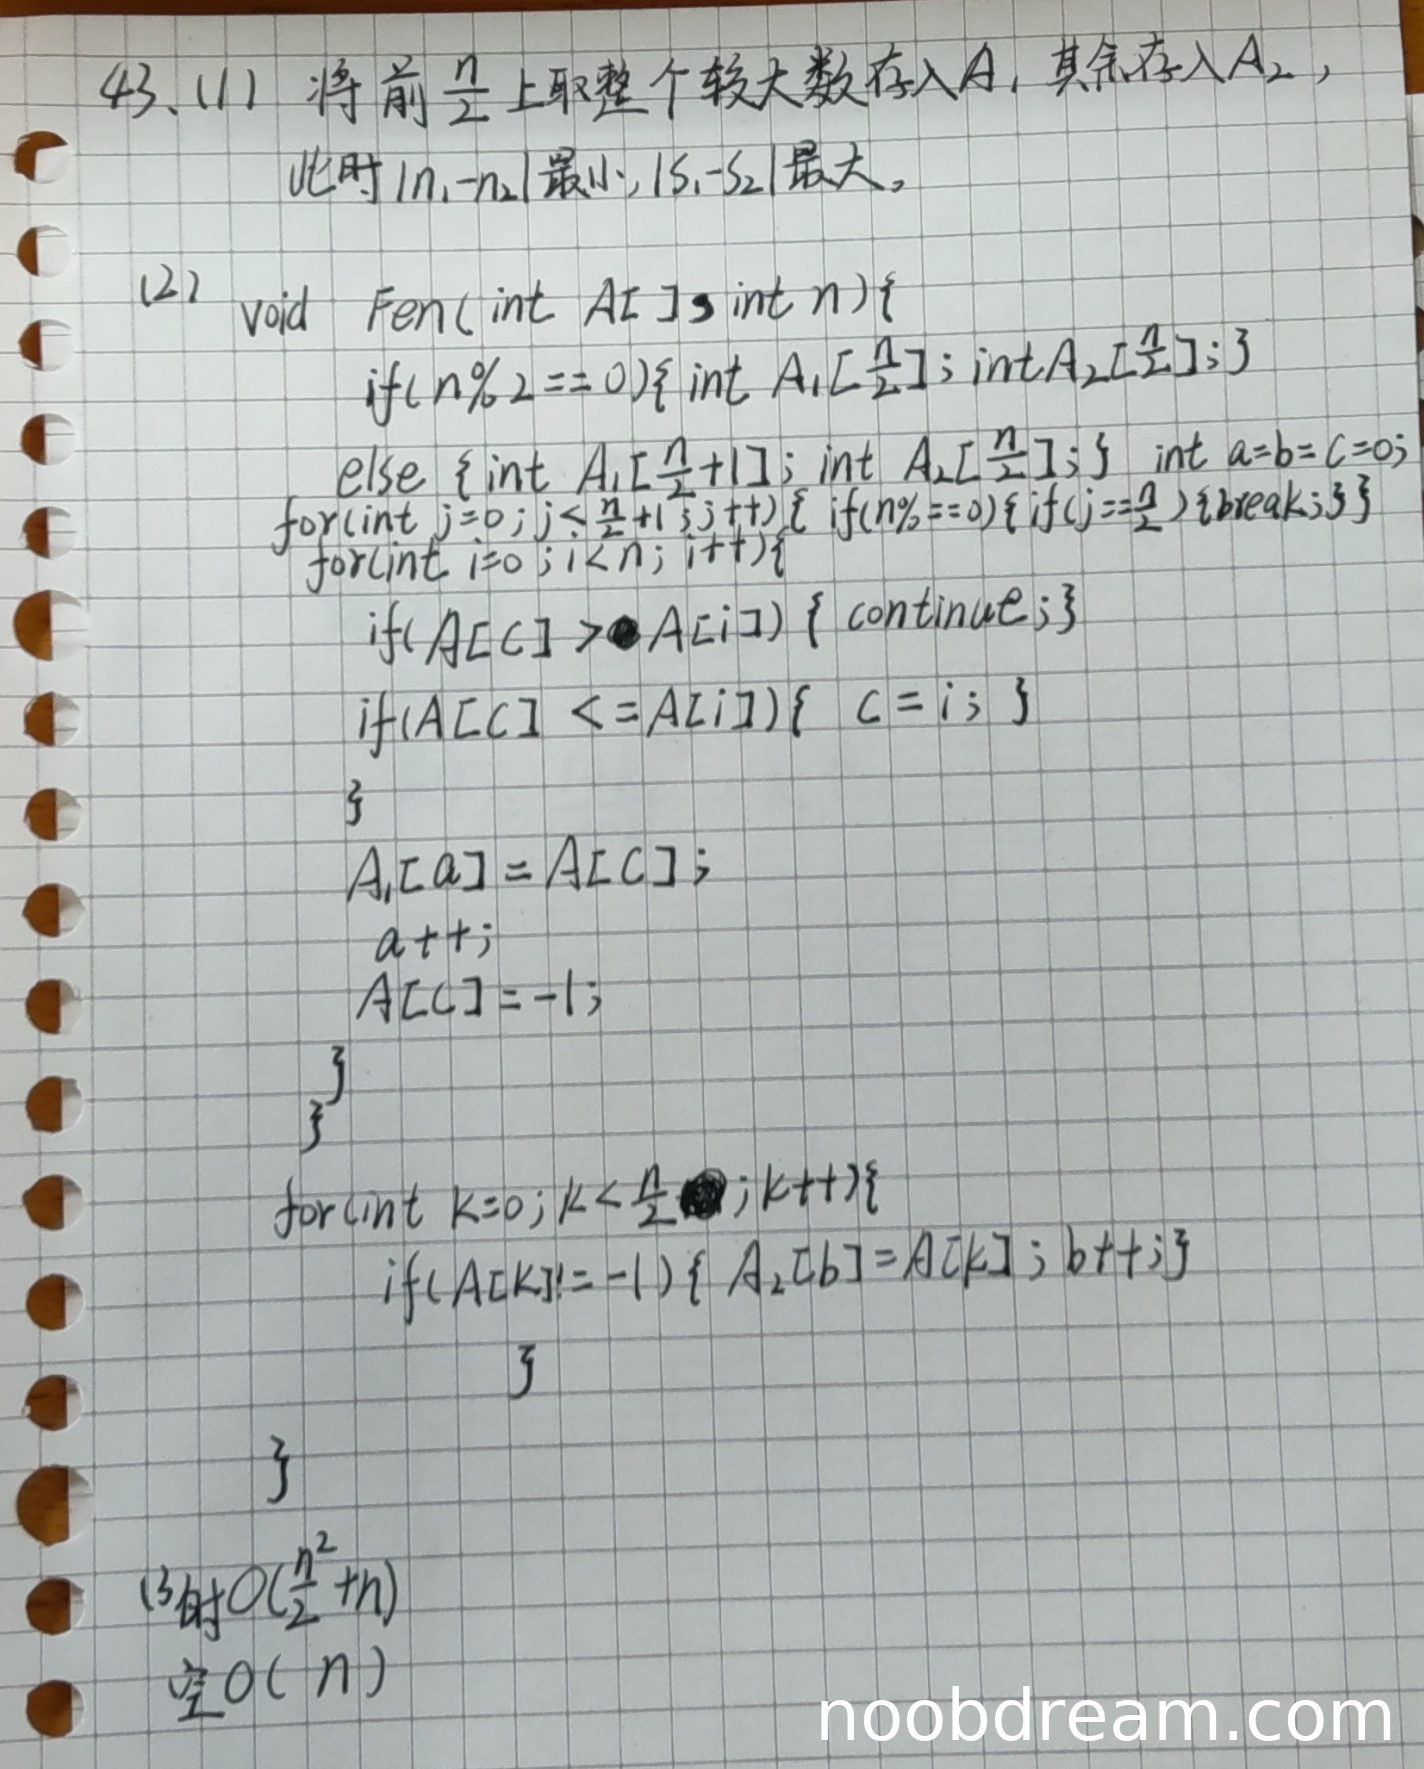 43、(1) 将前n/2上取整个较大数存入A₁,其余存入A₂,
此时|n₁-n₂|最小,|S₁-S₂|最大。
(2) void Fen(int A[], int n){
if(n%2==0){int A₁[n/2]; int A₂[n/2];}
else {int A₁[n/2+1]; int A₂[n/2];} int a=b=c=0;
for(int j=0;j<n/2+1;j++){ if(n%==0){if(j==n/2){break;}}
for(int i=0;i<n;i++){
if(A[C]>A[i]){continue;}
if(A[C]<=A[i]){ c=i; }
}
A₁[a]=A[C];
a++;
A[C]=-1;
}
}
for(int k=0;k<n/2;k++){
if(A[k]!=-1){A₂[b]=A[k];b++;}
}
}
(3 时O(n²/2+n)
空O(n)
noobdream.com